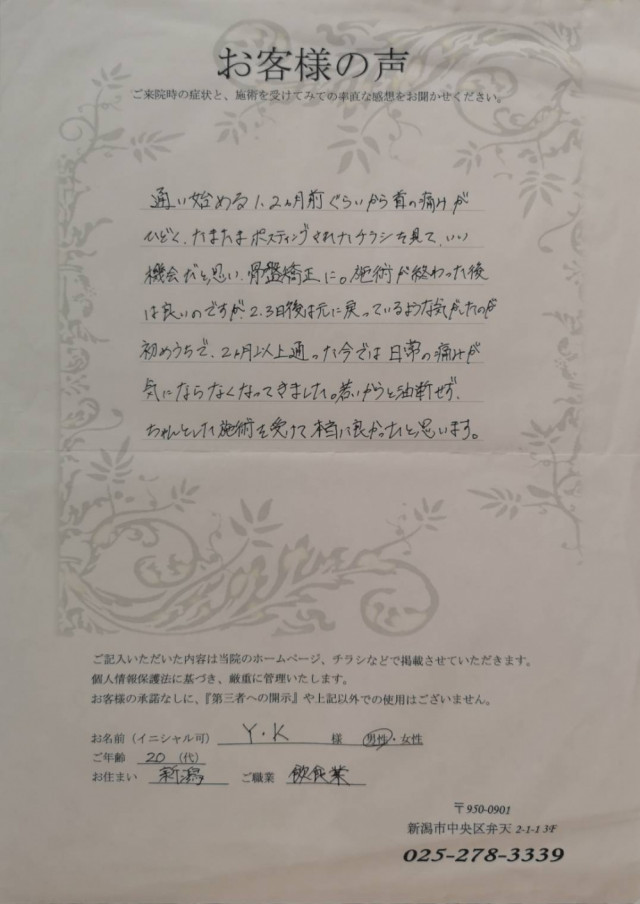 お客様の声
ご来院時の症状と、施術を受けてみての率直な感想をお聞かせください。
通い始める1、2ヶ月前ぐらいから首の痛みが
ひどく、たまたまポスティングされたチラシを見て、いい
機会だと思い、骨盤矯正に。施術が終わった後
は良いのですが、2、3日後は元に戻っているような気がしたのが
初めうちで、2ヶ月以上通った今では日常の痛みが
気にならなくなってきました。若いからと油断せず、
ちゃんとした施術を受けて本当に良かったと思います。
ご記入いただいた内容は当院のホームページ、チラシなどで掲載させていただきます。
個人情報保護法に基づき、厳重に管理いたします。
お客様の承諾なしに、『第三者への開示』や上記以外での使用はございません。
お名前（イニシャル可） Y・K 様 男性・女性
ご年齢 20（代）
お住まい 新潟 ご職業 飲食業
〒950-0901
新潟市中央区弁天 2-1-1 3F
025-278-3339